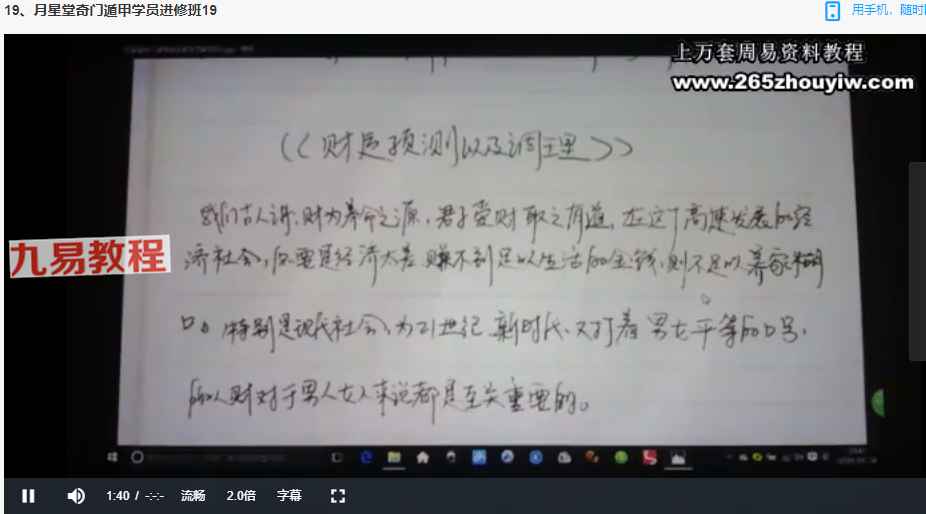 19、月星堂奇门遁甲学员进修班19
用手机，随时
上万套周易资料教程
www.265zhouyiw.com
《财运预测以及调理》
我们古人讲，财为养命之源，君子爱财取之有道，在这个高速发展的经
济社会，如要是经济太差赚不到足以生活的金钱，则不足以养家糊
九易教程
口。特别是现代社会，为21世纪新时代，又打着男女平等的口号，
所以财对于男人女人来说都是至关重要的。
1:40 / -:-:- 流畅 2.0倍 字幕